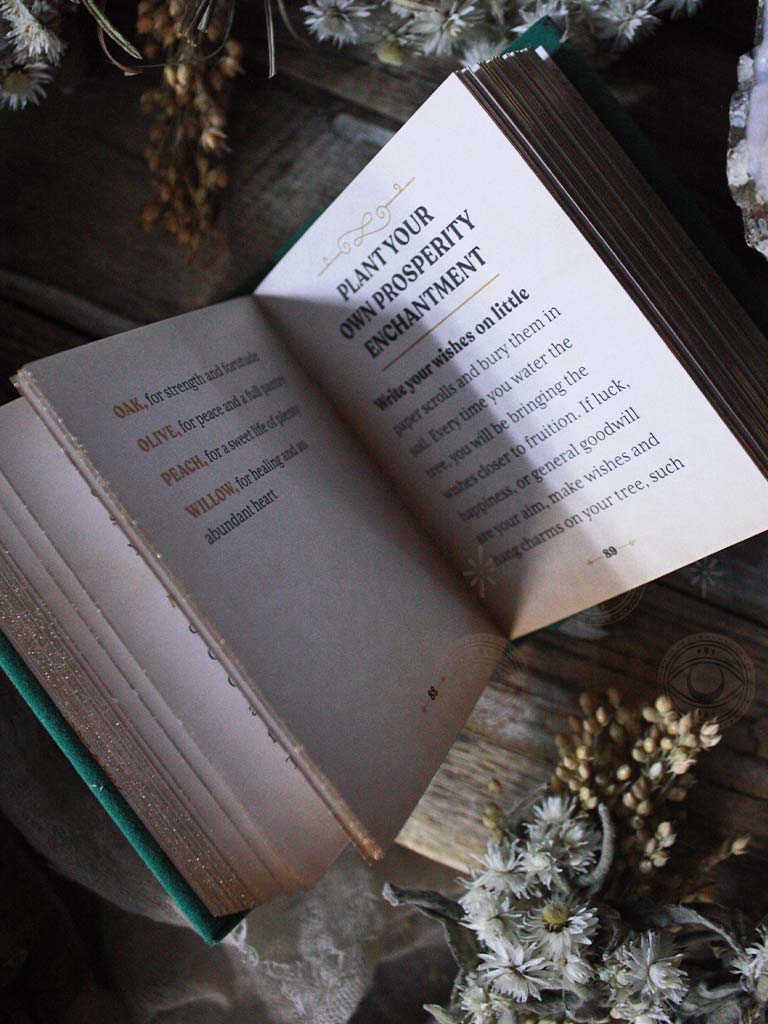 OAK, for strength and fortitude
OLIVE, for peace and a full pantry
PEACH, for a sweet life of plenty
WILLOW, for healing and an
abundant heart
88
PLANT YOUR
OWN PROSPERITY
ENCHANTMENT
Write your wishes on little
paper scrolls and bury them in
soil. Every time you water the
tree, you will be bringing the
wishes closer to fruition. If luck,
happiness, or general goodwill
are your aim, make wishes and
hang charms on your tree, such
89